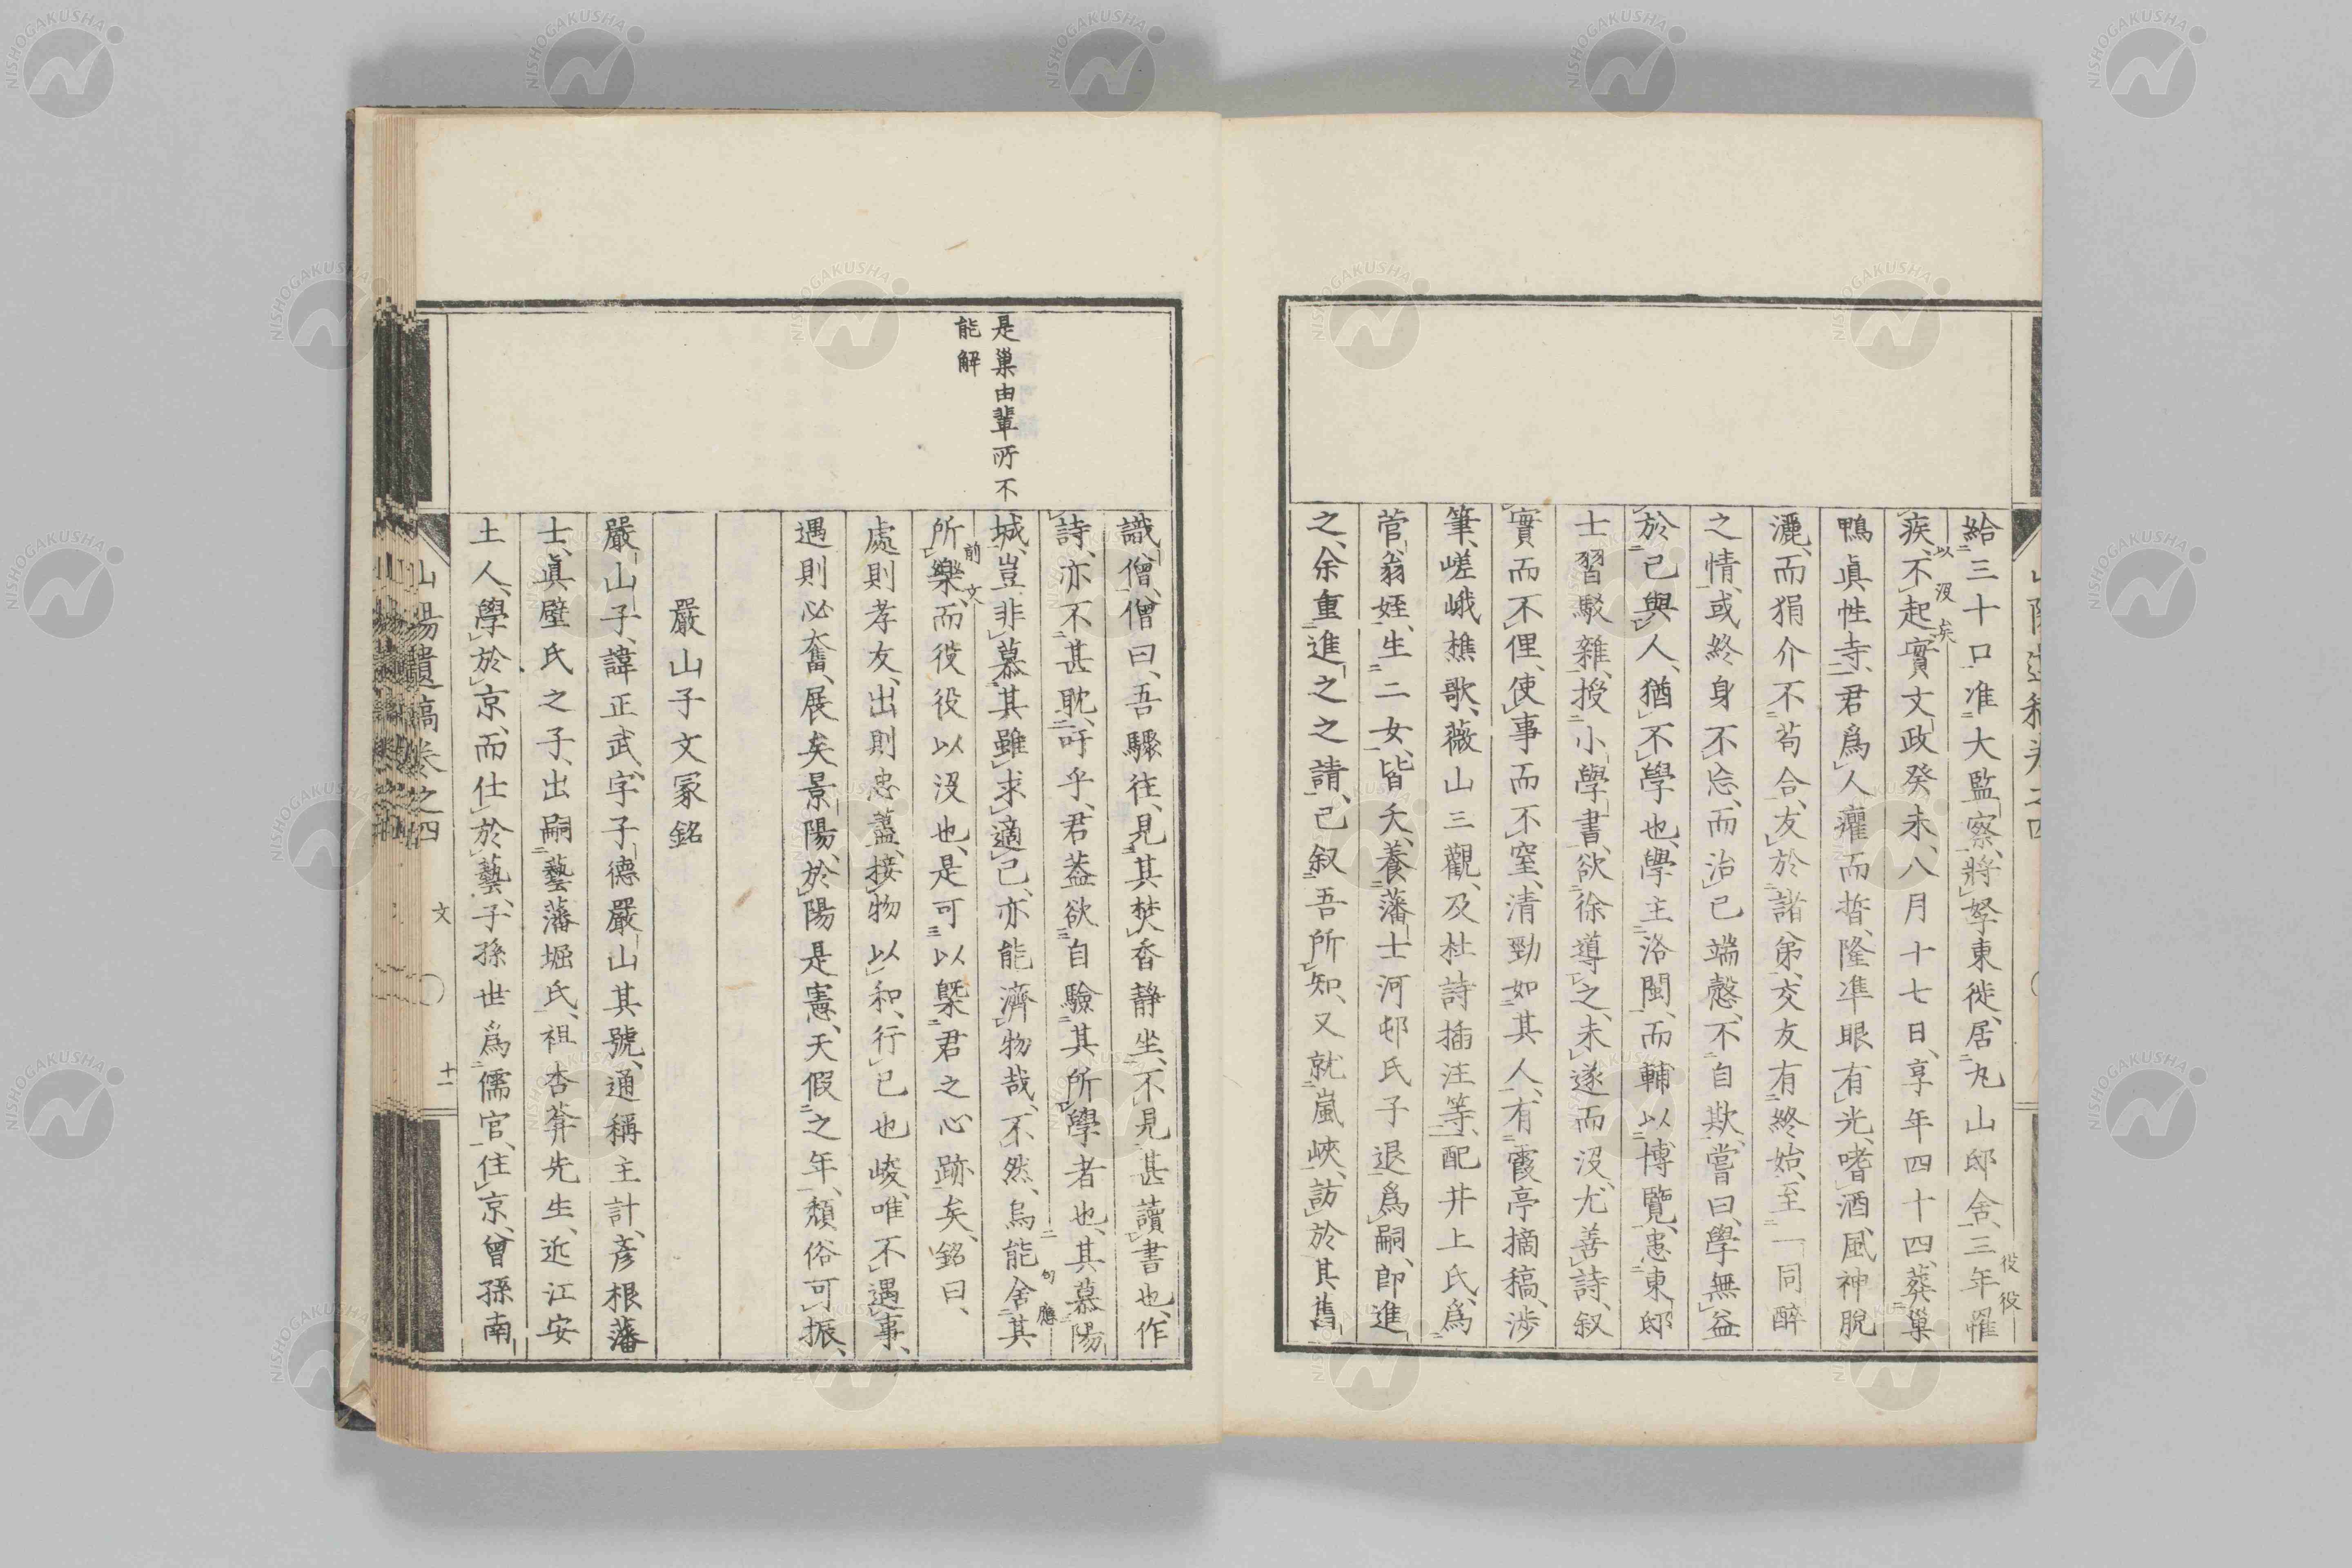 給三十口准大監察、將孥東徙、居丸山邸舍、三年罹
疾、不起、實文政癸未、八月十七日、享年四十四、葬巢
鴨眞性寺、君爲人癯而晳、隆準眼有光、嗜酒、風神脫
灑、而狷介不苟合、友於諸弟、交友有終始、至一同醉
之情、或終身不忘、而治己端愨、不自欺、嘗曰、學無益
於己與人、猶不學也、學主洛閩、而輔以博覽、患東邸
士習駁雜、授小學書、欲徐導之、未遂而沒、尤善詩、叙
實而不俚、使事而不窒、清勁如其人、有霞亭摘稿、渉
筆、嵯峨樵歌、薇山三觀、及杜詩插注等、配井上氏、爲
菅翁姪、生二女、皆夭、養藩士河邨氏子退爲嗣、即進
之、余重進之之請、已叙吾所知、又就嵐峽、訪於其舊
以沒矣
役役
識僧、僧曰、吾驟往、見其焚香靜坐、不見甚讀書也、作
詩、亦不甚耽、吁乎、君葢欲自驗其所學者也、其慕陽
城、豈非慕其雖求適己、亦能濟物哉、不然、烏能舍其
所樂、而役役以沒也、是可以槩君之心跡矣、銘曰、
處則孝友、出則忠藎、接物以和、行己也峻、唯不遇事、
遇則必奮、展矣景陽、於陽是憲、天假之年、頹俗可振、
是巢由輩所不
能解
二句應
前文
嚴山子文冢銘
嚴山子、諱正武、字子德、嚴山其號、通稱主計、彥根藩
士、眞壁氏之子、出嗣藝藩堀氏、祖杏葊先生、近江安
土人、學於京、而仕於藝、子孫世爲儒官、住京、曾孫南
山陽遺稿卷之四
文
十一